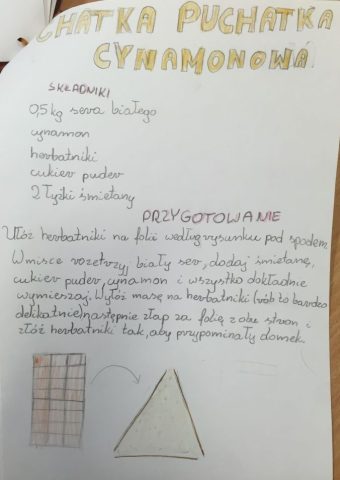 CHATKA PUCHATKA
CYNAMONOWA
SKŁADNIKI
0,5 kg sera białego
cynamon
herbatniki
cukier puder
2 łyżki śmietany
PRZYGOTOWANIE
Ułóż herbatniki na folii według rysunku pod spodem.
W misce rozetrzyj biały ser, dodaj śmietanę,
cukier puder, cynamon i wszystko dokładnie
wymieszaj. Wyłóż masę na herbatniki (rób to bardzo
delikatnie) następnie złap za folię z obu stron i
złóż herbatniki tak, aby przypominały domek.